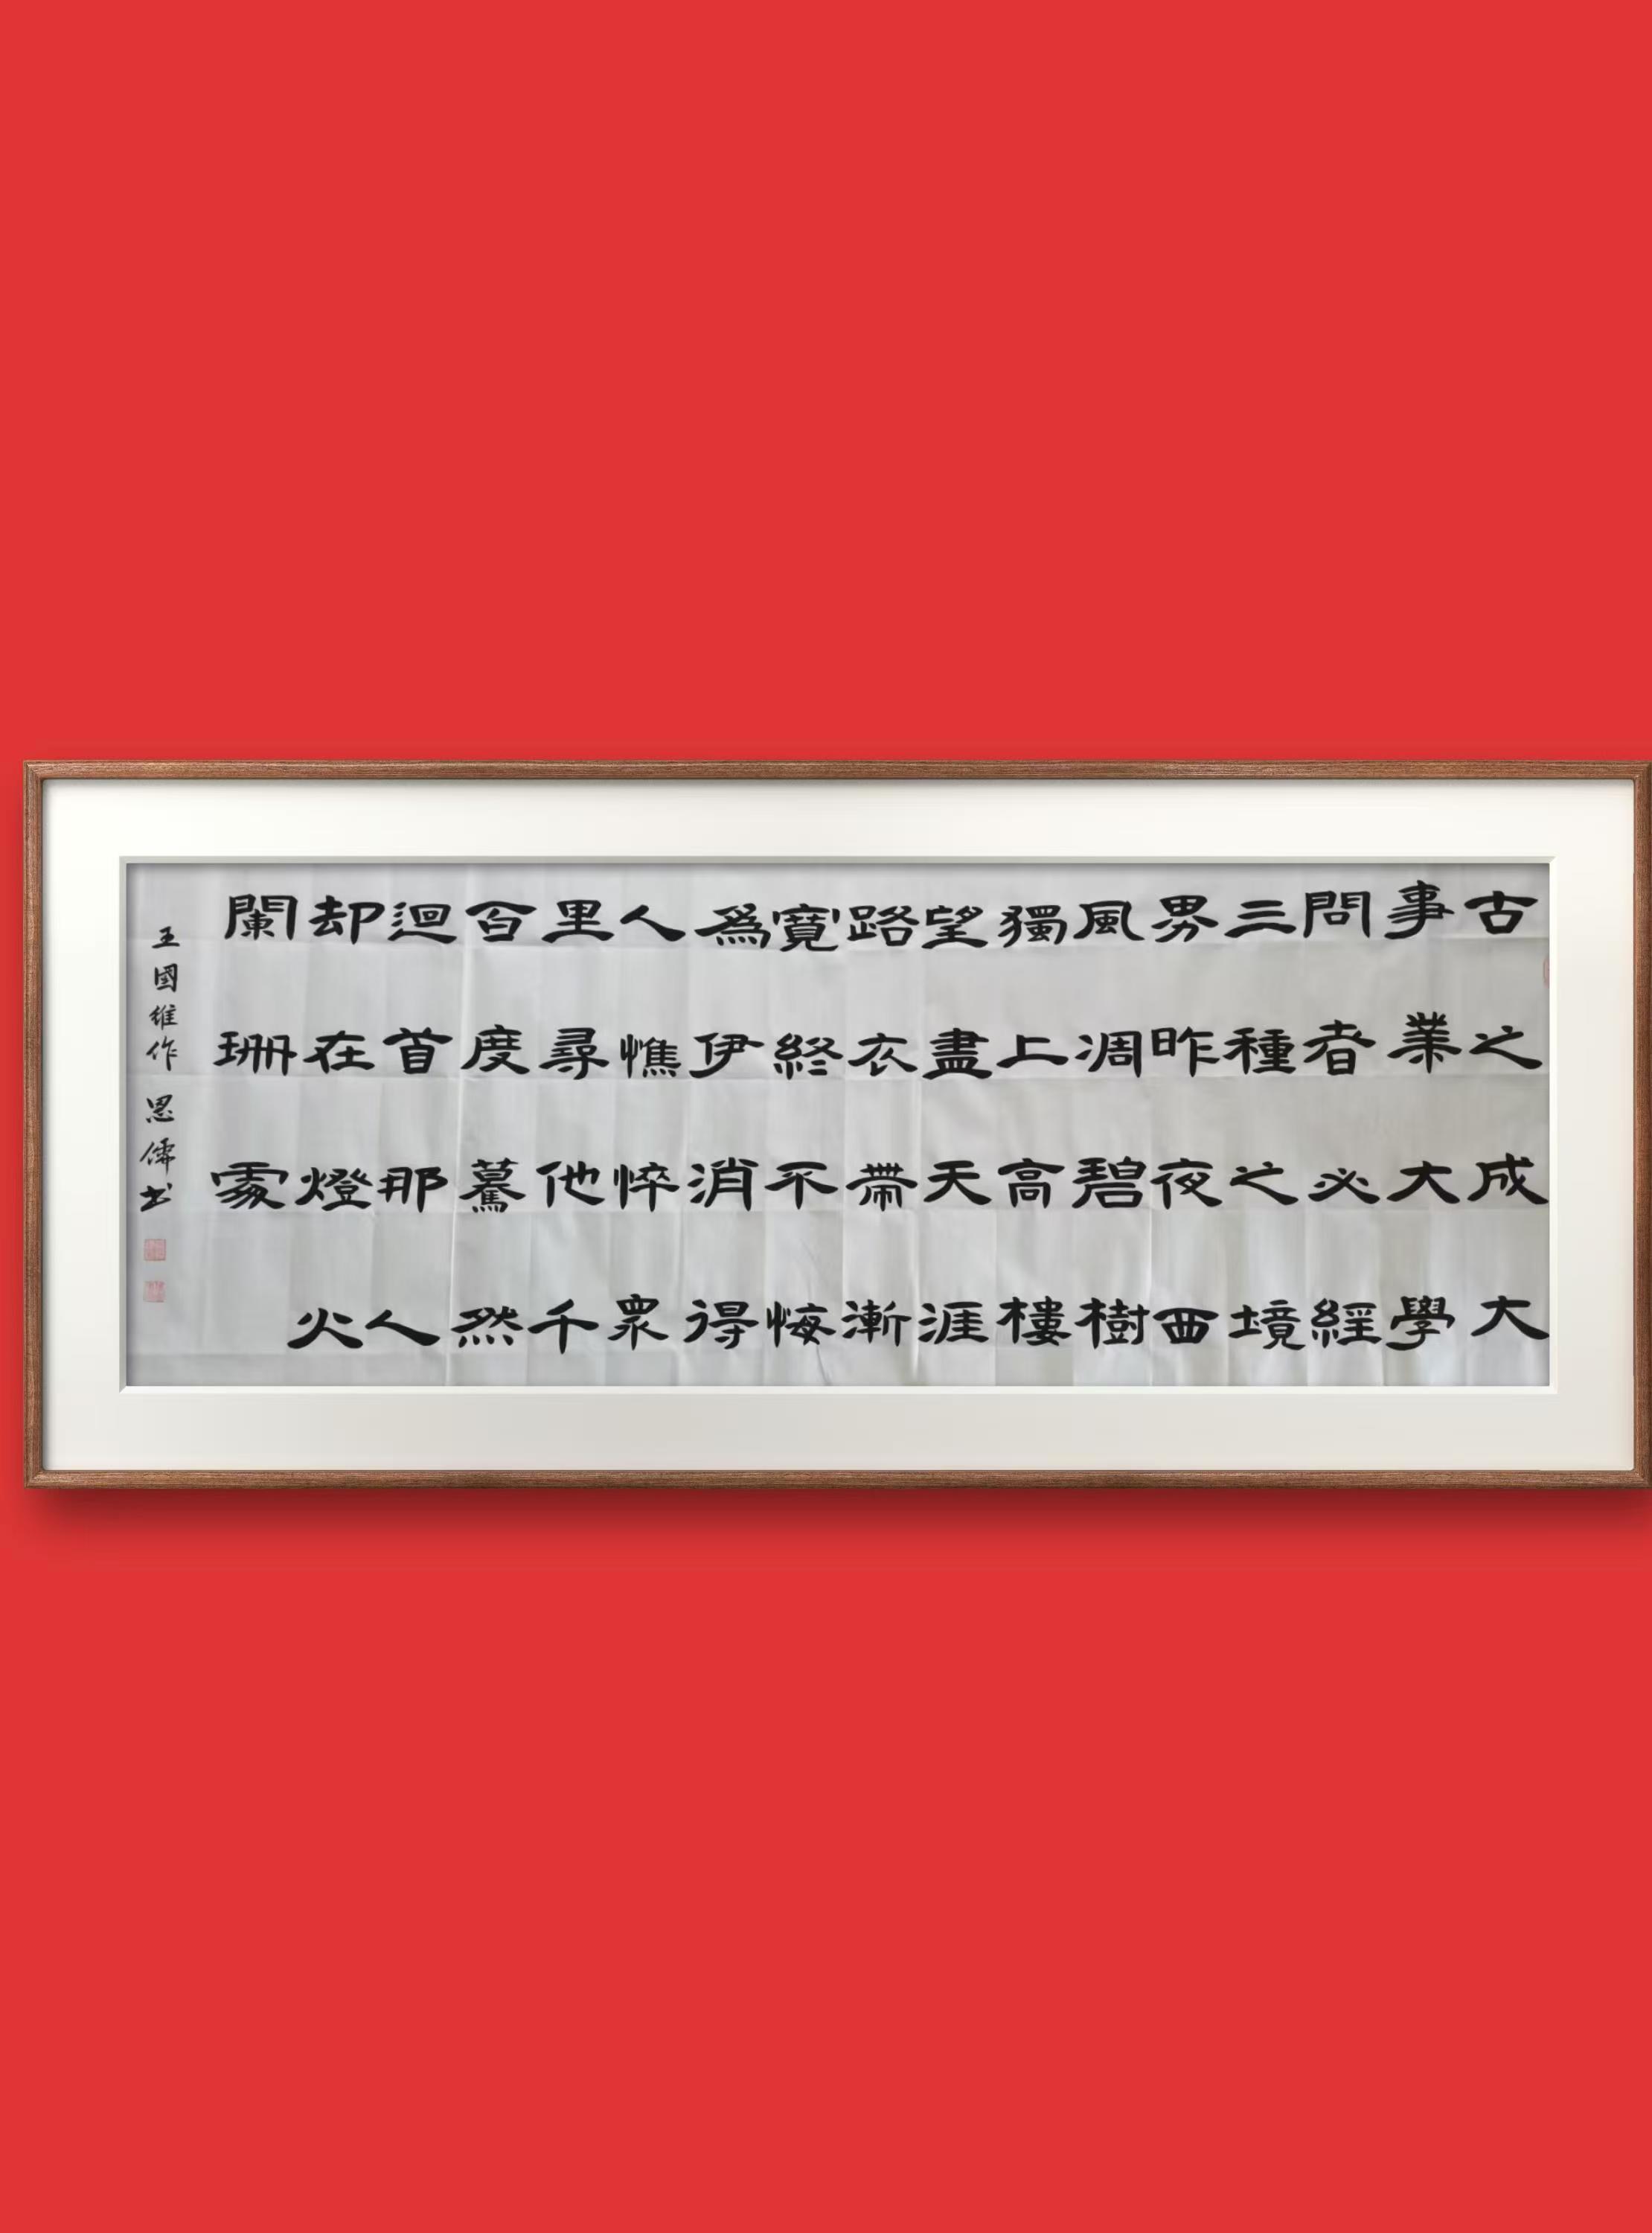 古之成大
事業大學
問者必經
三種之境
界昨夜西
風凋碧樹
獨上高樓
望盡天涯
路衣帶漸
寬終不悔
爲伊消得
人憔悴眾
里尋他千
百度驀然
迴首那人
却在燈火
闌珊處
王國維作 思儒书